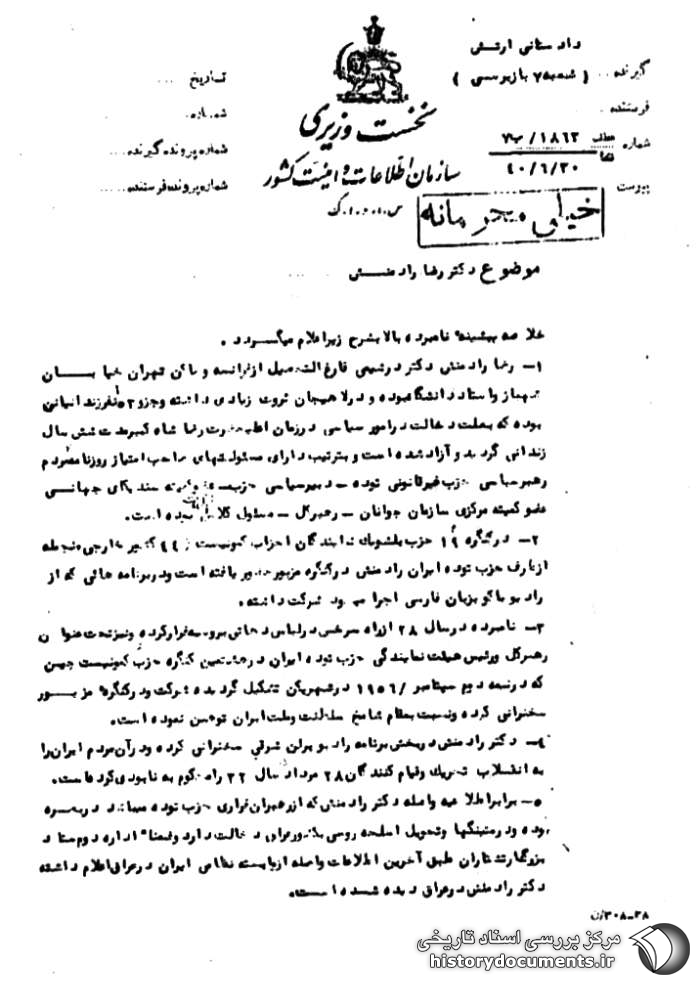 دادستانی ارتش
گیرنده ... ( شعبه ۷ بازپرسی )
تاریخ ...
فرستنده
شماره
نخست وزیری
شماره ۱۸۶۳/ب۷
شماره پرونده گیرنده...
۴۰/۶/۳۰
سازمان اطلاعات و امنیت کشور
شماره پرونده فرستنده...
پیوست
خیلی محرمانه
موضوع دکتر رضا رادمنش
خلاصه پیشینه نامبرده بالا بشرح زیر اعلام میگردد .
۱- رضا رادمنش دکتر در شیمی فارغ التحصیل از فرانسه و ساکن تهران خیابان
شهناز و استاد دانشگاه بوده و در لاهیجان ثروت زیادی داشته و جزو ۵۳ نفر زندانیانی
بوده که بعلت دخالت در امور سیاسی در زمان اعلیحضرت رضا شاه کبیر مدت شش سال
زندانی گردیده و آزاد شده است و بترتیب دارای مسئولیتهای صاحب امتیاز روزنامه مردم
رهبر سیاسی حزب غیرقانونی توده - دبیر سیاسی حزب جهانی
عضو کمیته مرکزی سازمان جوانان - رهبر کل - مسئول بوده است.
۲- در کنگره ۱۹ حزب بلشویک نمایندگان احزاب کمونیست ۴۴ کشور خارجی منجمله
از طرف حزب توده ایران رادمنش در کنگره مزبور حضور یافته است و در برنامه هائی که از
رادیو باکو بزبان فارسی اجرا میشود شرکت داشته.
۳- نامبرده در سال ۲۸ از راه سرخس در لباس دهاتی بروسیه فرار کرده و نیز تحت عنوان
رهبر کل و رئیس هیئت نمایندگی حزب توده ایران در هشتمین کنگره حزب کمونیست چین
که در نیمه دوم سپتامبر ۱۹۵۶/ در شهر پکن تشکیل گردیده شرکت و در کنگره مزبور
سخنرانی کرده و نسبت بمقام شامخ سلطنت و ملت ایران توهین نموده است.
۴- دکتر رادمنش در پخش برنامه رادیو برلن شرقی سخنرانی کرده و در آن مردم ایران را
به انقلاب تحریک و قیام کنندگان ۲۸ مرداد سال ۳۲ را محکوم به نابودی کرده است.
۵- برابر اطلاعیه واصله دکتر رادمنش که از رهبران فراری حزب توده میباشد در بصره
بوده و در میتینگها و تحویل اسلحه روسی عراق دخالت دارد و ضمناً اداره دوم ستاد
بزرگ ارتشتاران طبق آخرین اطلاعات واصله از وابسته نظامی ایران در عراق اعلام داشته
دکتر رادمنش در عراق دیده شده است.
۳۰۸-۲۸/ن
مرکز بررسی اسناد تاریخی
historydocuments.ir